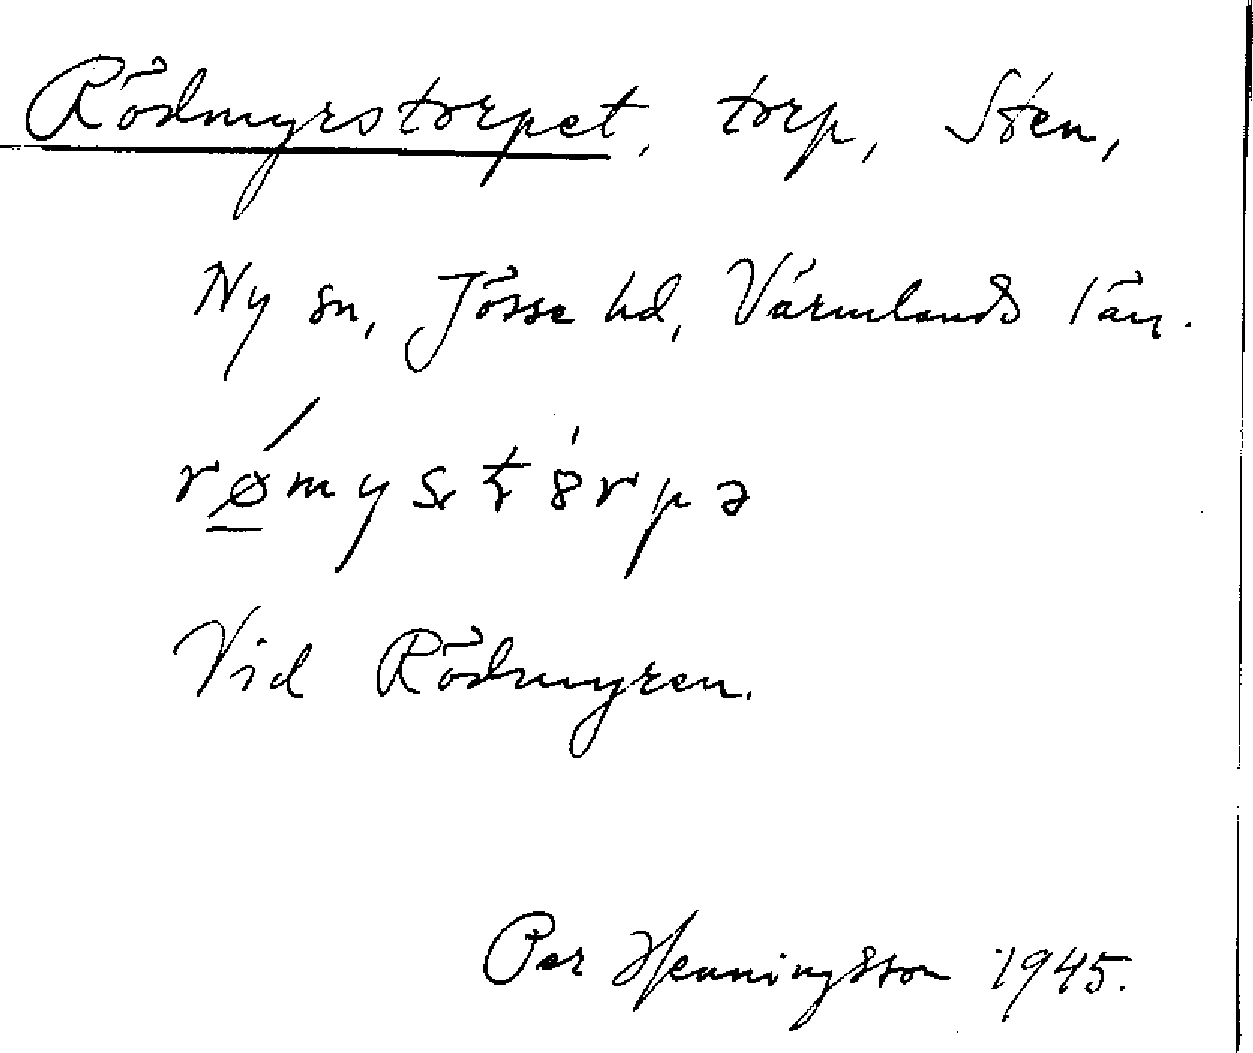 Rödmyrstorpet, torp, Sten,
Ny sn, Jösse hd, Värmlands län.
Vid Rödmyren.
Per Henningsson 1945.